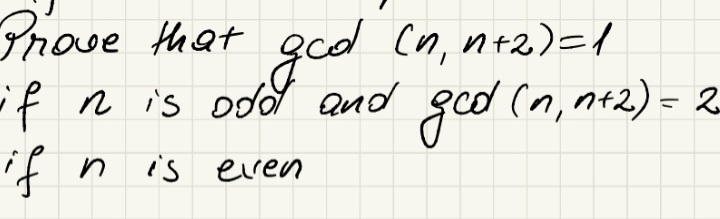 Prove that gcd (n, n+2)=1
if n is odd and gcd (n, n+2) = 2
if n is even